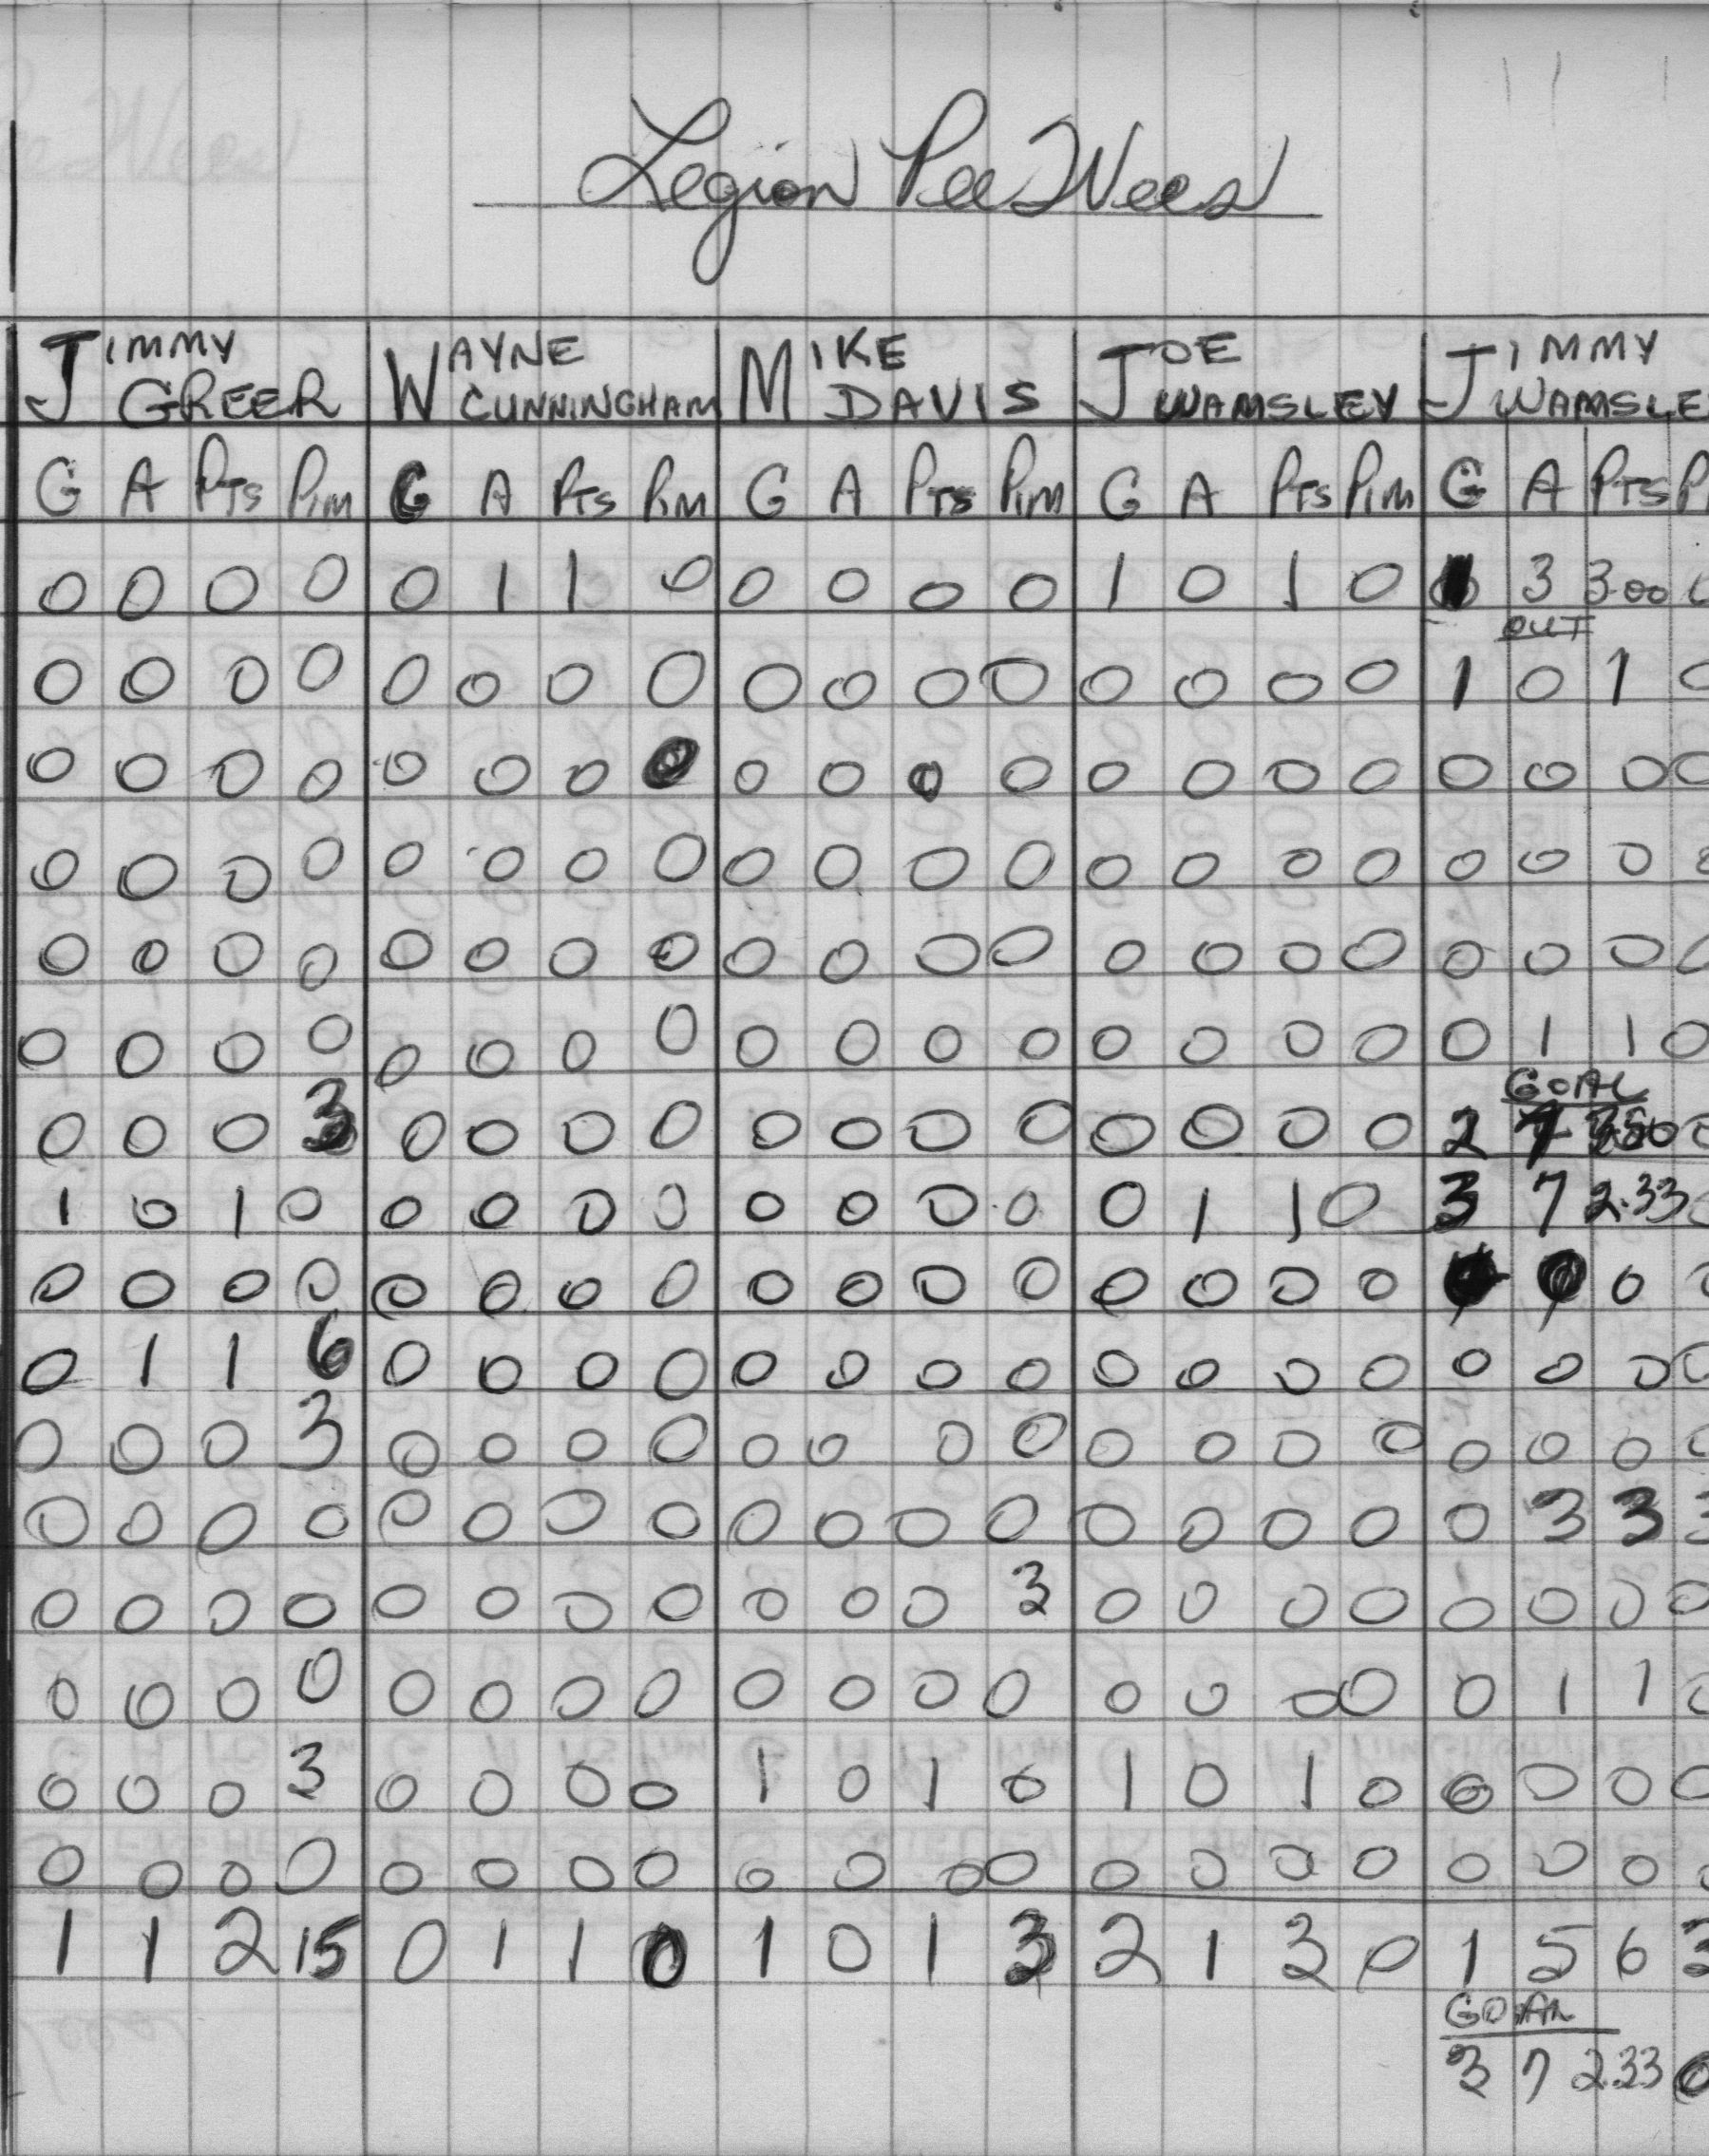 Legion PeeWees
JIMMY GREER WAYNE CUNNINGHAM MIKE DAVIS JOE WAMSLEY JIMMY WAMSLE
G A PTS PIM G A PTS PIM G A PTS PIM G A PTS PIM G A PTS P
0 0 0 0 0 1 1 0 0 0 0 0 1 0 1 0 3 3.00
OUT
0 0 0 0 0 0 0 0 0 0 0 0 0 0 0 0 1 0 1 0
0 0 0 0 0 0 0 0 0 0 0 0 0 0 0 0 0 0 0 0
0 0 0 0 0 0 0 0 0 0 0 0 0 0 0 0 0 0 0 0
0 0 0 0 0 0 0 0 0 0 0 0 0 0 0 0 0 0 0 0
0 0 0 0 0 0 0 0 0 0 0 0 0 0 0 0 0 1 1 0
GOAL
0 0 0 3 0 0 0 0 0 0 0 0 0 0 0 0 2 7 0
1 0 1 0 0 0 0 0 0 0 0 0 0 1 1 0 3 7 2.33 0
0 0 0 0 0 0 0 0 0 0 0 0 0 0 0 0 0 0
0 1 1 6 0 0 0 0 0 0 0 0 0 0 0 0 0 0 0 0
0 0 0 3 0 0 0 0 0 0 0 0 0 0 0 0 0 0 0 0
0 0 0 0 0 0 0 0 0 0 0 0 0 0 0 0 0 3 3 3
0 0 0 0 0 0 0 0 0 0 0 3 0 0 0 0 0 0 0 0
0 0 0 0 0 0 0 0 0 0 0 0 0 0 0 0 0 1 1 0
0 0 0 3 0 0 0 0 1 0 1 0 1 0 1 0 0 0 0 0
0 0 0 0 0 0 0 0 0 0 0 0 0 0 0 0 0 0 0 0
1 1 2 15 0 1 1 0 1 0 1 3 2 1 3 0 1 5 6 3
GOAL
3 7 2.33 0